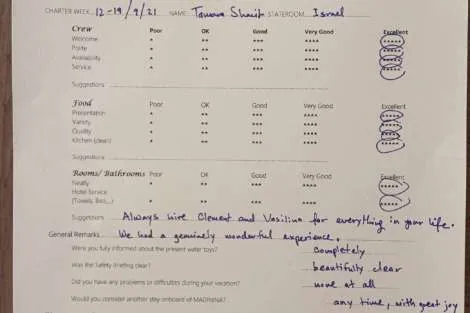 CHARTER WEEK 12-19/9/21 NAME Tamara Sharif STATEROOM Israel
Crew Poor OK Good Very Good Excellent
Welcome * ** *** **** *****
Polite * ** *** **** *****
Availability * ** *** **** *****
Service * ** *** **** *****
Suggestions
Food Poor OK Good Very Good Excellent
Presentation * ** *** **** *****
Variety * ** *** **** *****
Quality * ** *** **** *****
Kitchen (clean) * ** *** **** *****
Suggestions
Rooms/ Bathrooms Poor OK Good Very Good Excellent
Neatly * ** *** **** *****
Hotel Service
(Towels, Bed,...) * ** *** **** *****
Suggestions Always hire Clement and Vasilina for everything in your life.
General Remarks We had a genuinely wonderful experience.
Were you fully informed about the present water toys? completely
Was the Safety Briefing clear? beautifully clear
Did you have any problems or difficulties during your vacation? none at all
Would you consider another stay onboard of any time, with great joy